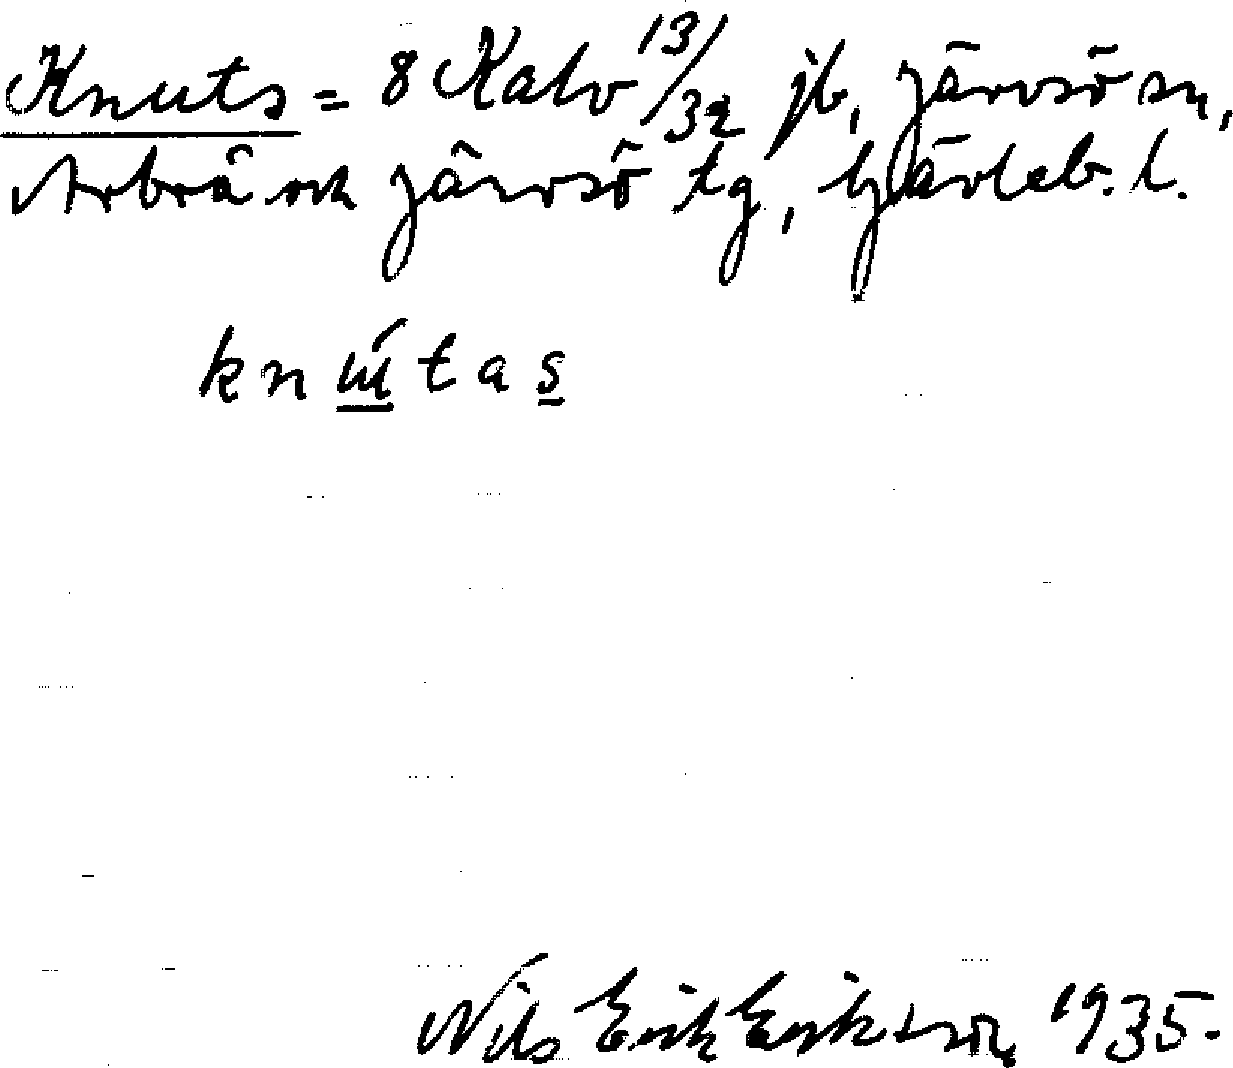 Knuts = 8 Kalv 13/32 jb, Järvsö sn,
Arbrå och Järvsö tg, Gävleb. l.
knútas
Nils Erik Eriksson 1935.